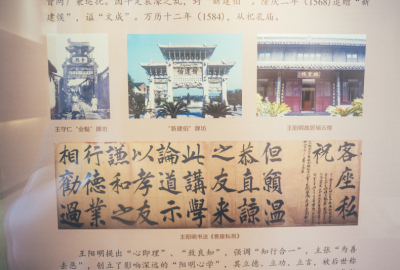 建侯”，谥“文成”。万历十二年（1584），从祀孔庙。
王守仁“会魁”牌坊
“新建伯”牌坊
王阳明故居瑞云楼
客座私
祝
但願溫
恭直諒
之友來
此講學
論道示
以孝友
謙和之
行德業
相勸過
王阳明书法《客座私祝》
王阳明提出“心即理”、“致良知”，强调“知行合一”，主张“为善
去恶”，创立了影响深远的“阳明心学”，其立德、立功、立言，被后世称